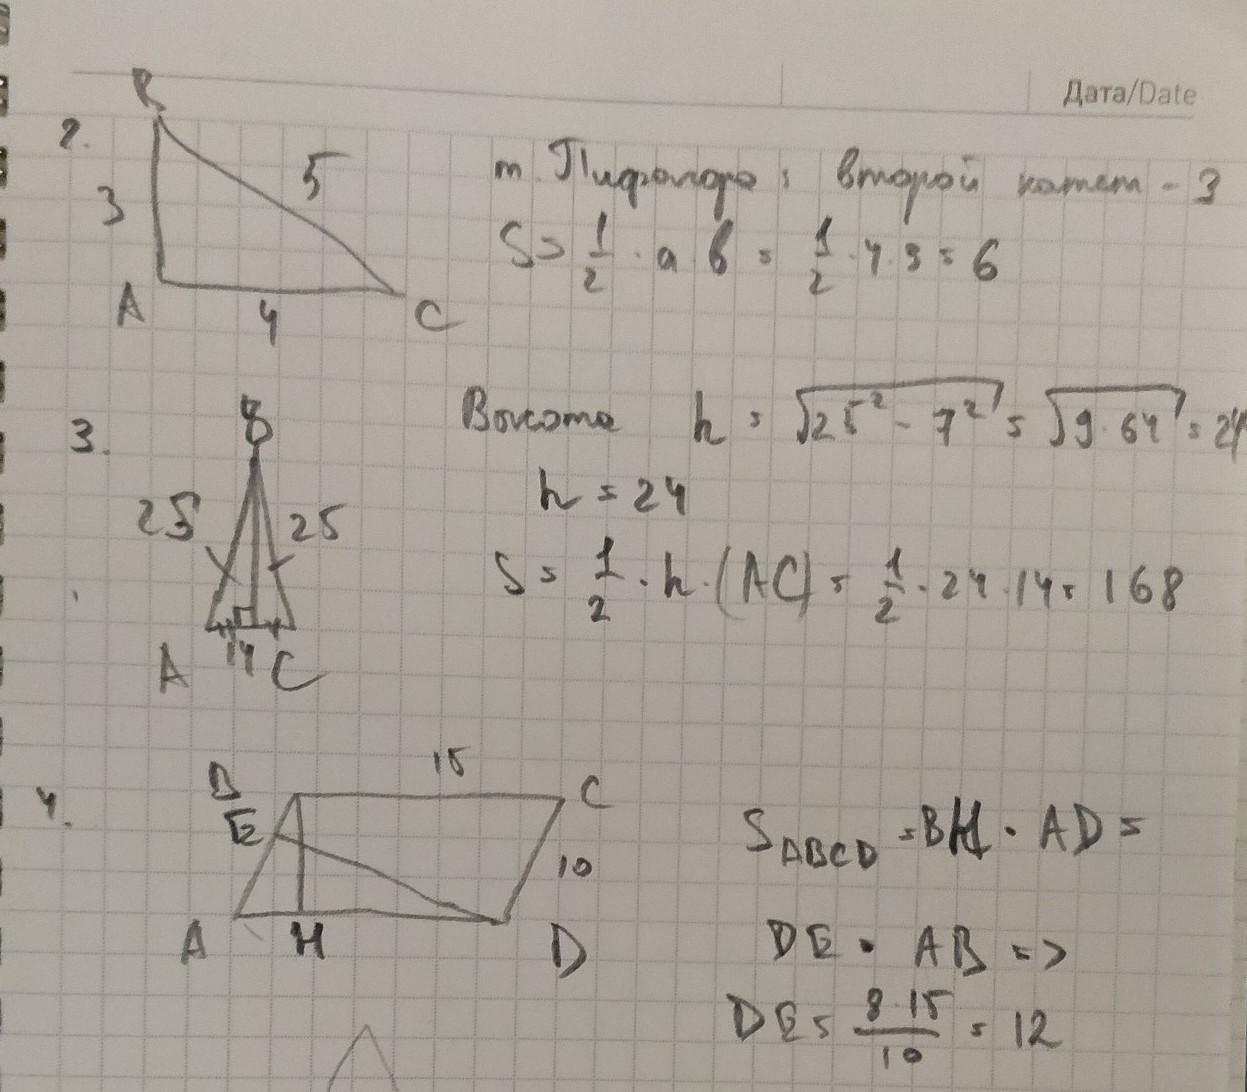 Дата/Date
2.
B
3
5
A
4
C
т. Пифагора: второй катет - 3
S = 1/2 · a · b = 1/2 · 4 · 3 = 6
3.
B
25
25
A
14
C
Высота h = √(25² - 7²) = √(9 · 64) = 24
h = 24
S = 1/2 · h · (AC) = 1/2 · 24 · 14 = 168
4.
B
15
C
E
10
A
H
D
S ABCD = BH · AD =
DE · AB =>
DE = 8·15/10 = 12